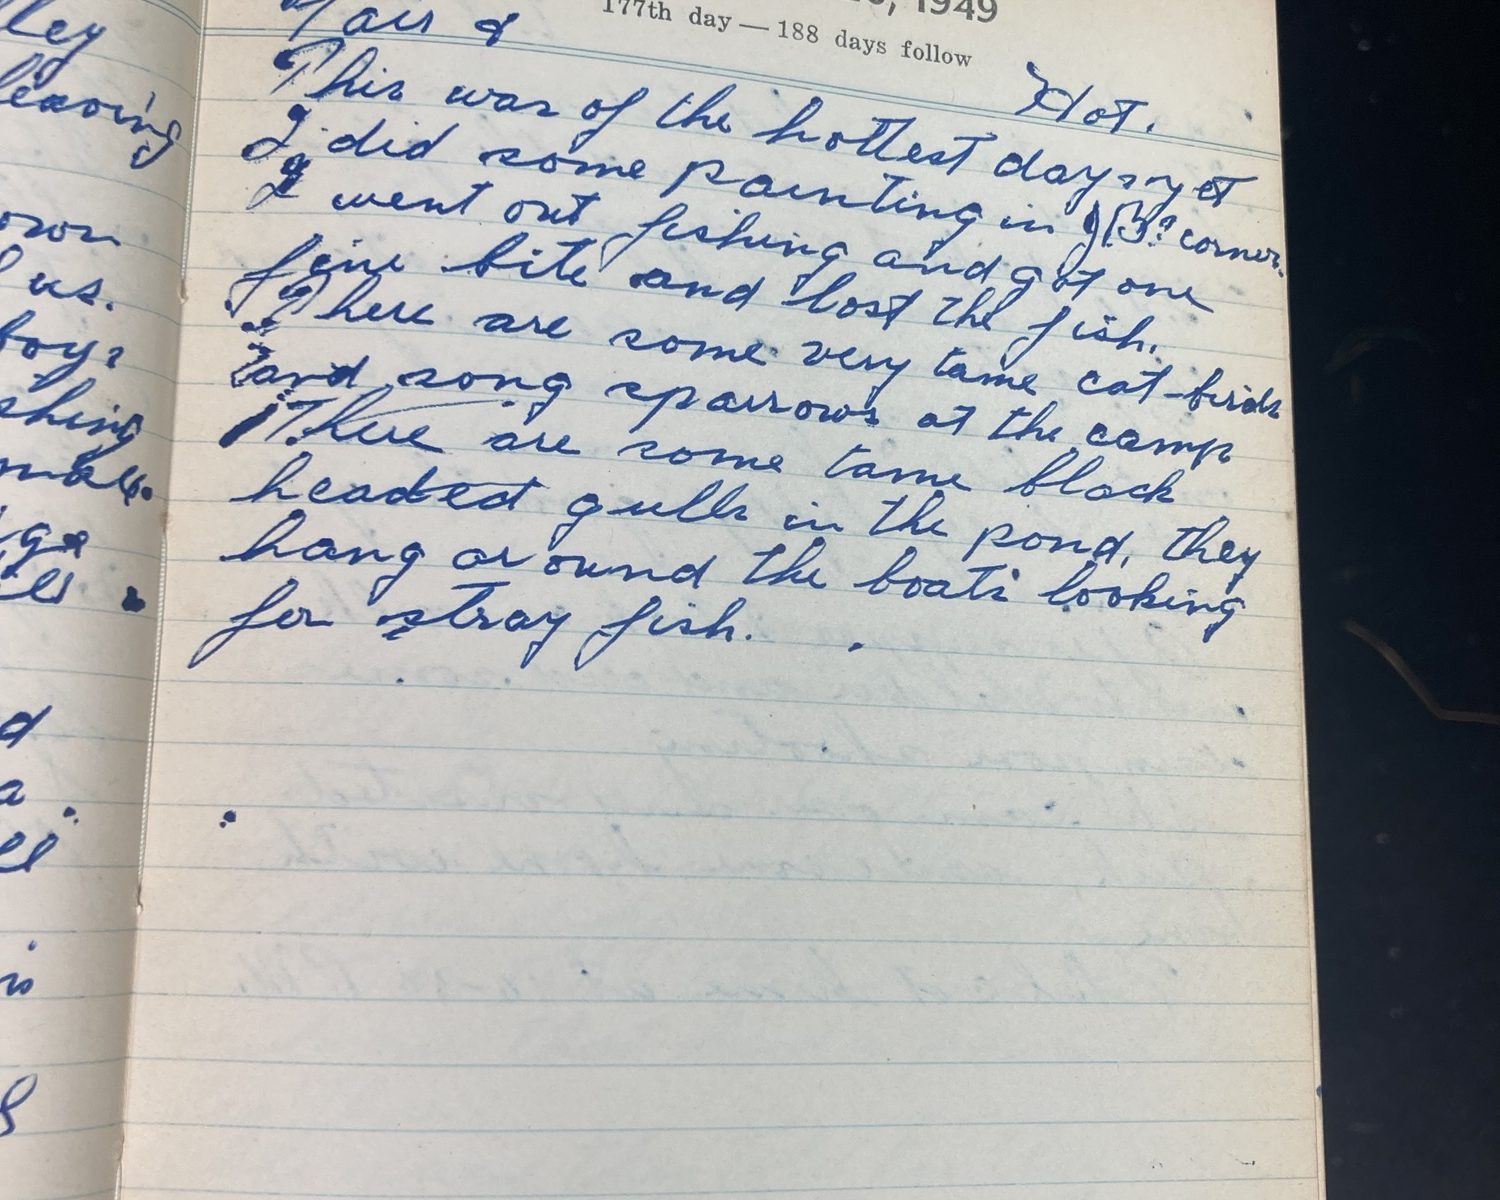 lley
leaving
own
us.
boys
shing
d
a.
is
, 1949
177th day — 188 days follow
Fair &
Hot.
This was of the hottest days yet
I did some painting in JB's corner.
I went out fishing and got one
fine bite and lost the fish.
There are some very tame cat-birds
and song sparrows at the camp
There are some tame black
headed gulls in the pond, they
hang around the boats looking
for stray fish.